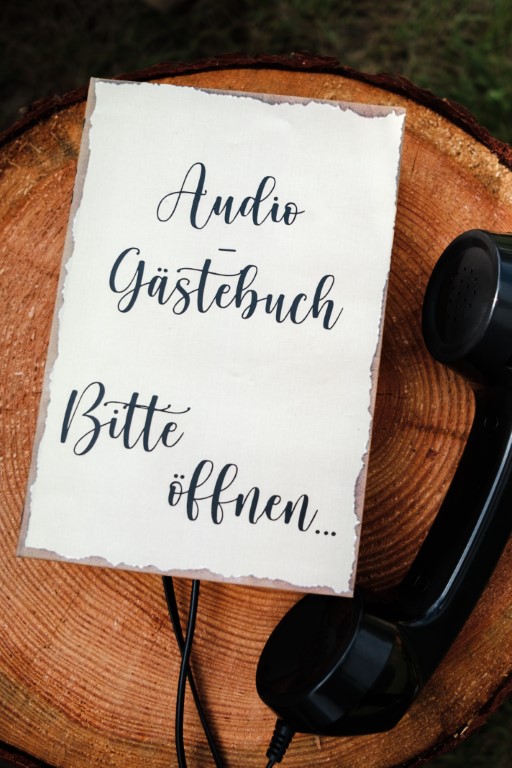 Audio
-
Gästebuch
Bitte
öffnen...